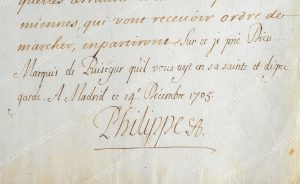 miennes, qui vont recevoir ordre de
marcher, en partiront, Sur ce je prie Dieu
Marquis de Puiségur qu'il vous ayt en sa sainte et digne
garde. A Madrid ce 14e. Décembre 1703.
Philippe